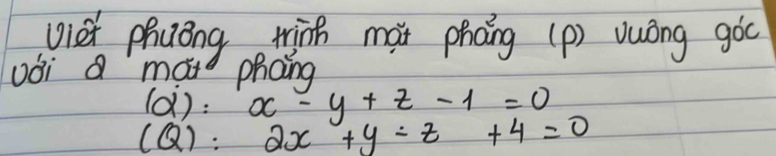 Viết phương trình mặt phẳng (P) vuông góc
với 2 mặt phẳng
(α): x - y + z - 1 = 0
(Q): 2x + y - z + 4 = 0